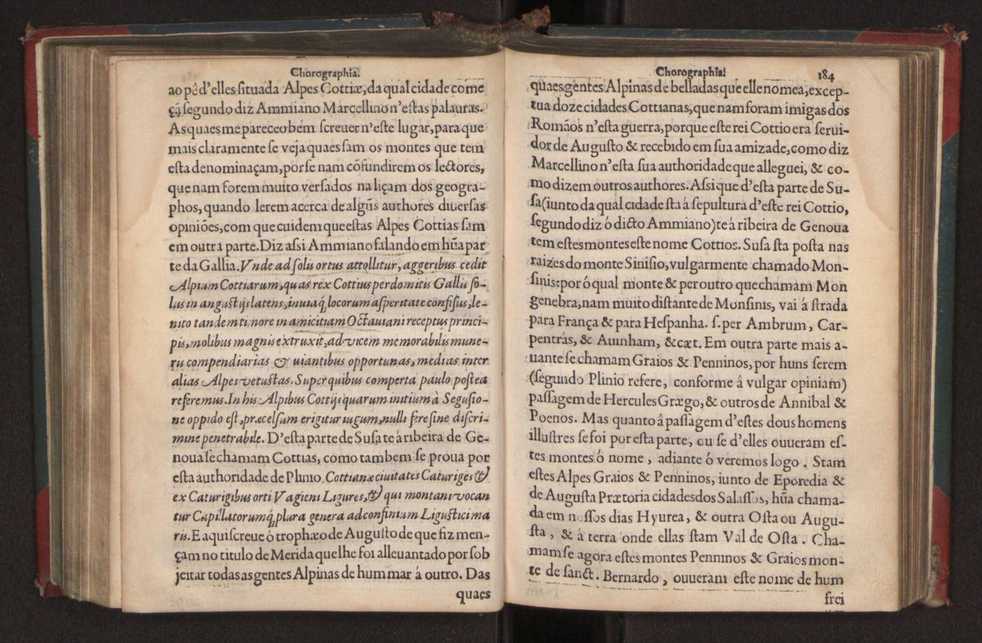 Chorographia.
ao pé d'elles situada Alpes Cottiæ, da qual cidade come
ça segundo diz Ammiano Marcellino n'estas palauras.
As quaes me pareceo bém screuer n'este lugar, para que
mais claramente se veja quaes sam os montes que tem
esta denominaçam, por se nam cõfundirem os lectores,
que nam forem muito versados na liçam dos geogra-
phos, quando lerem acerca de algũs authores diuersas
opiniões, com que cuidem que estas Alpes Cottias sam
em outra parte. Diz assi Ammiano falando em hũa par
te da Gallia. Vnde ad solis ortus attollitur, aggeribus cedit
Alpium Cottiarum, quas rex Cottius perdomitis Gallis so-
lus in angustijs latens, inuiaq́; locorum asperitate confisus, le-
nito tandem tumore in amicitiam Octauiani receptus princi-
pis, molibus magnis extruxit, ad vicem memorabilis mune-
ris compendiarias & viantibus opportunas, medias inter
alias Alpes vetustas. Super quibus comperta paulo postea
referemus. In his Alpibus Cottijs quarum initium à Segusio-
ne oppido est, præcelsum erigitur iugum, nulli fere sine discri-
mine penetrabile. D'esta parte de Susa te à ribeira de Ge-
noua se chamam Cottias, como tambem se proua por
esta authoridade de Plinio. Cottianæ ciuitates Caturiges &
ex Caturigibus orti Vagieni Ligures, & qui montani vocan
tur Capillatorumq́; plura genera ad confinium Ligustici ma
ris. E aqui screue ó trophæo de Augusto de que fiz men-
çam no titulo de Merida que lhe foi alleuantado por sob
jeitar todas as gentes Alpinas de hum mar á outro. Das
quaes
Chorographia.
184
quaes gentes Alpinas debelladas que elle nomea, excep-
tua doze cidades Cottianas, que nam foram imigas dos
Romãos n'esta guerra, porque este rei Cottio era serui-
dor de Augusto & recebido em sua amizade, como diz
Marcellino n'esta sua authoridade que alleguei, & co-
mo dizem outros authores. Assi que d'esta parte de Su-
sa (iunto da qual cidade sta á sepultura d'este rei Cottio,
segundo diz ó dicto Ammiano) te á ribeira de Genoua
tem estes montes este nome Cottios. Susa sta posta nas
raizes do monte Sinisio, vulgarmente chamado Mon-
sinis: por ó qual monte & per outro que chamam Mon
genebra, nam muito distante de Monsinis, vai á strada
para França & para Hespanha. s. per Ambrum, Car-
pentràs, & Auinham, &cæt. Em outra parte mais a-
uante se chamam Graios & Penninos, por huns serem
(segundo Plinio refere, conforme á vulgar opiniam)
passagem de Hercules Græego, & outros de Annibal &
Poenos. Mas quanto â passagem d'estes dous homens
illustres se foi por esta parte, ou se d'elles ouueram es-
tes montes ó nome, adiante ó veremos logo. Stam
estes Alpes Graios & Penninos, iunto de Eporedia &
de Augusta Prætoria cidades dos Salassos, hũa chama-
da em nossos dias Hyurea, & outra Osta ou Augu-
sta, & à terra onde ellas stam Val de Osta. Cha-
mam se agora estes montes Penninos & Graios mon-
te de sanct. Bernardo, ouueram este nome de hum
frei